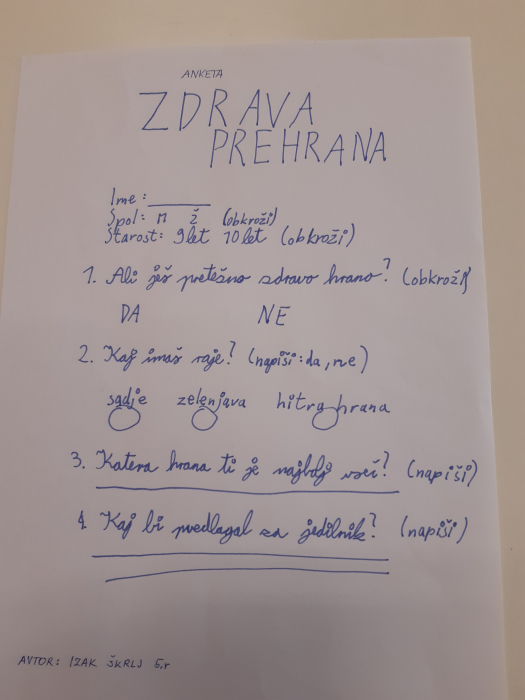 ANKETA
ZDRAVA
PREHRANA
Ime: ________
Spol: M ž (obkroži)
Starost: 9 let 10 let (obkroži)
1. Ali ješ pretežno zdravo hrano? (obkroži)
DA NE
2. Kaj imaš raje? (napiši: da, ne)
sadje zelenjava hitra hrana
3. Katera hrana ti je najbolj všeč? (napiši)
4. Kaj bi predlagal za jedilnik? (napiši)
AVTOR: IZAK ŠKRLJ 5.r